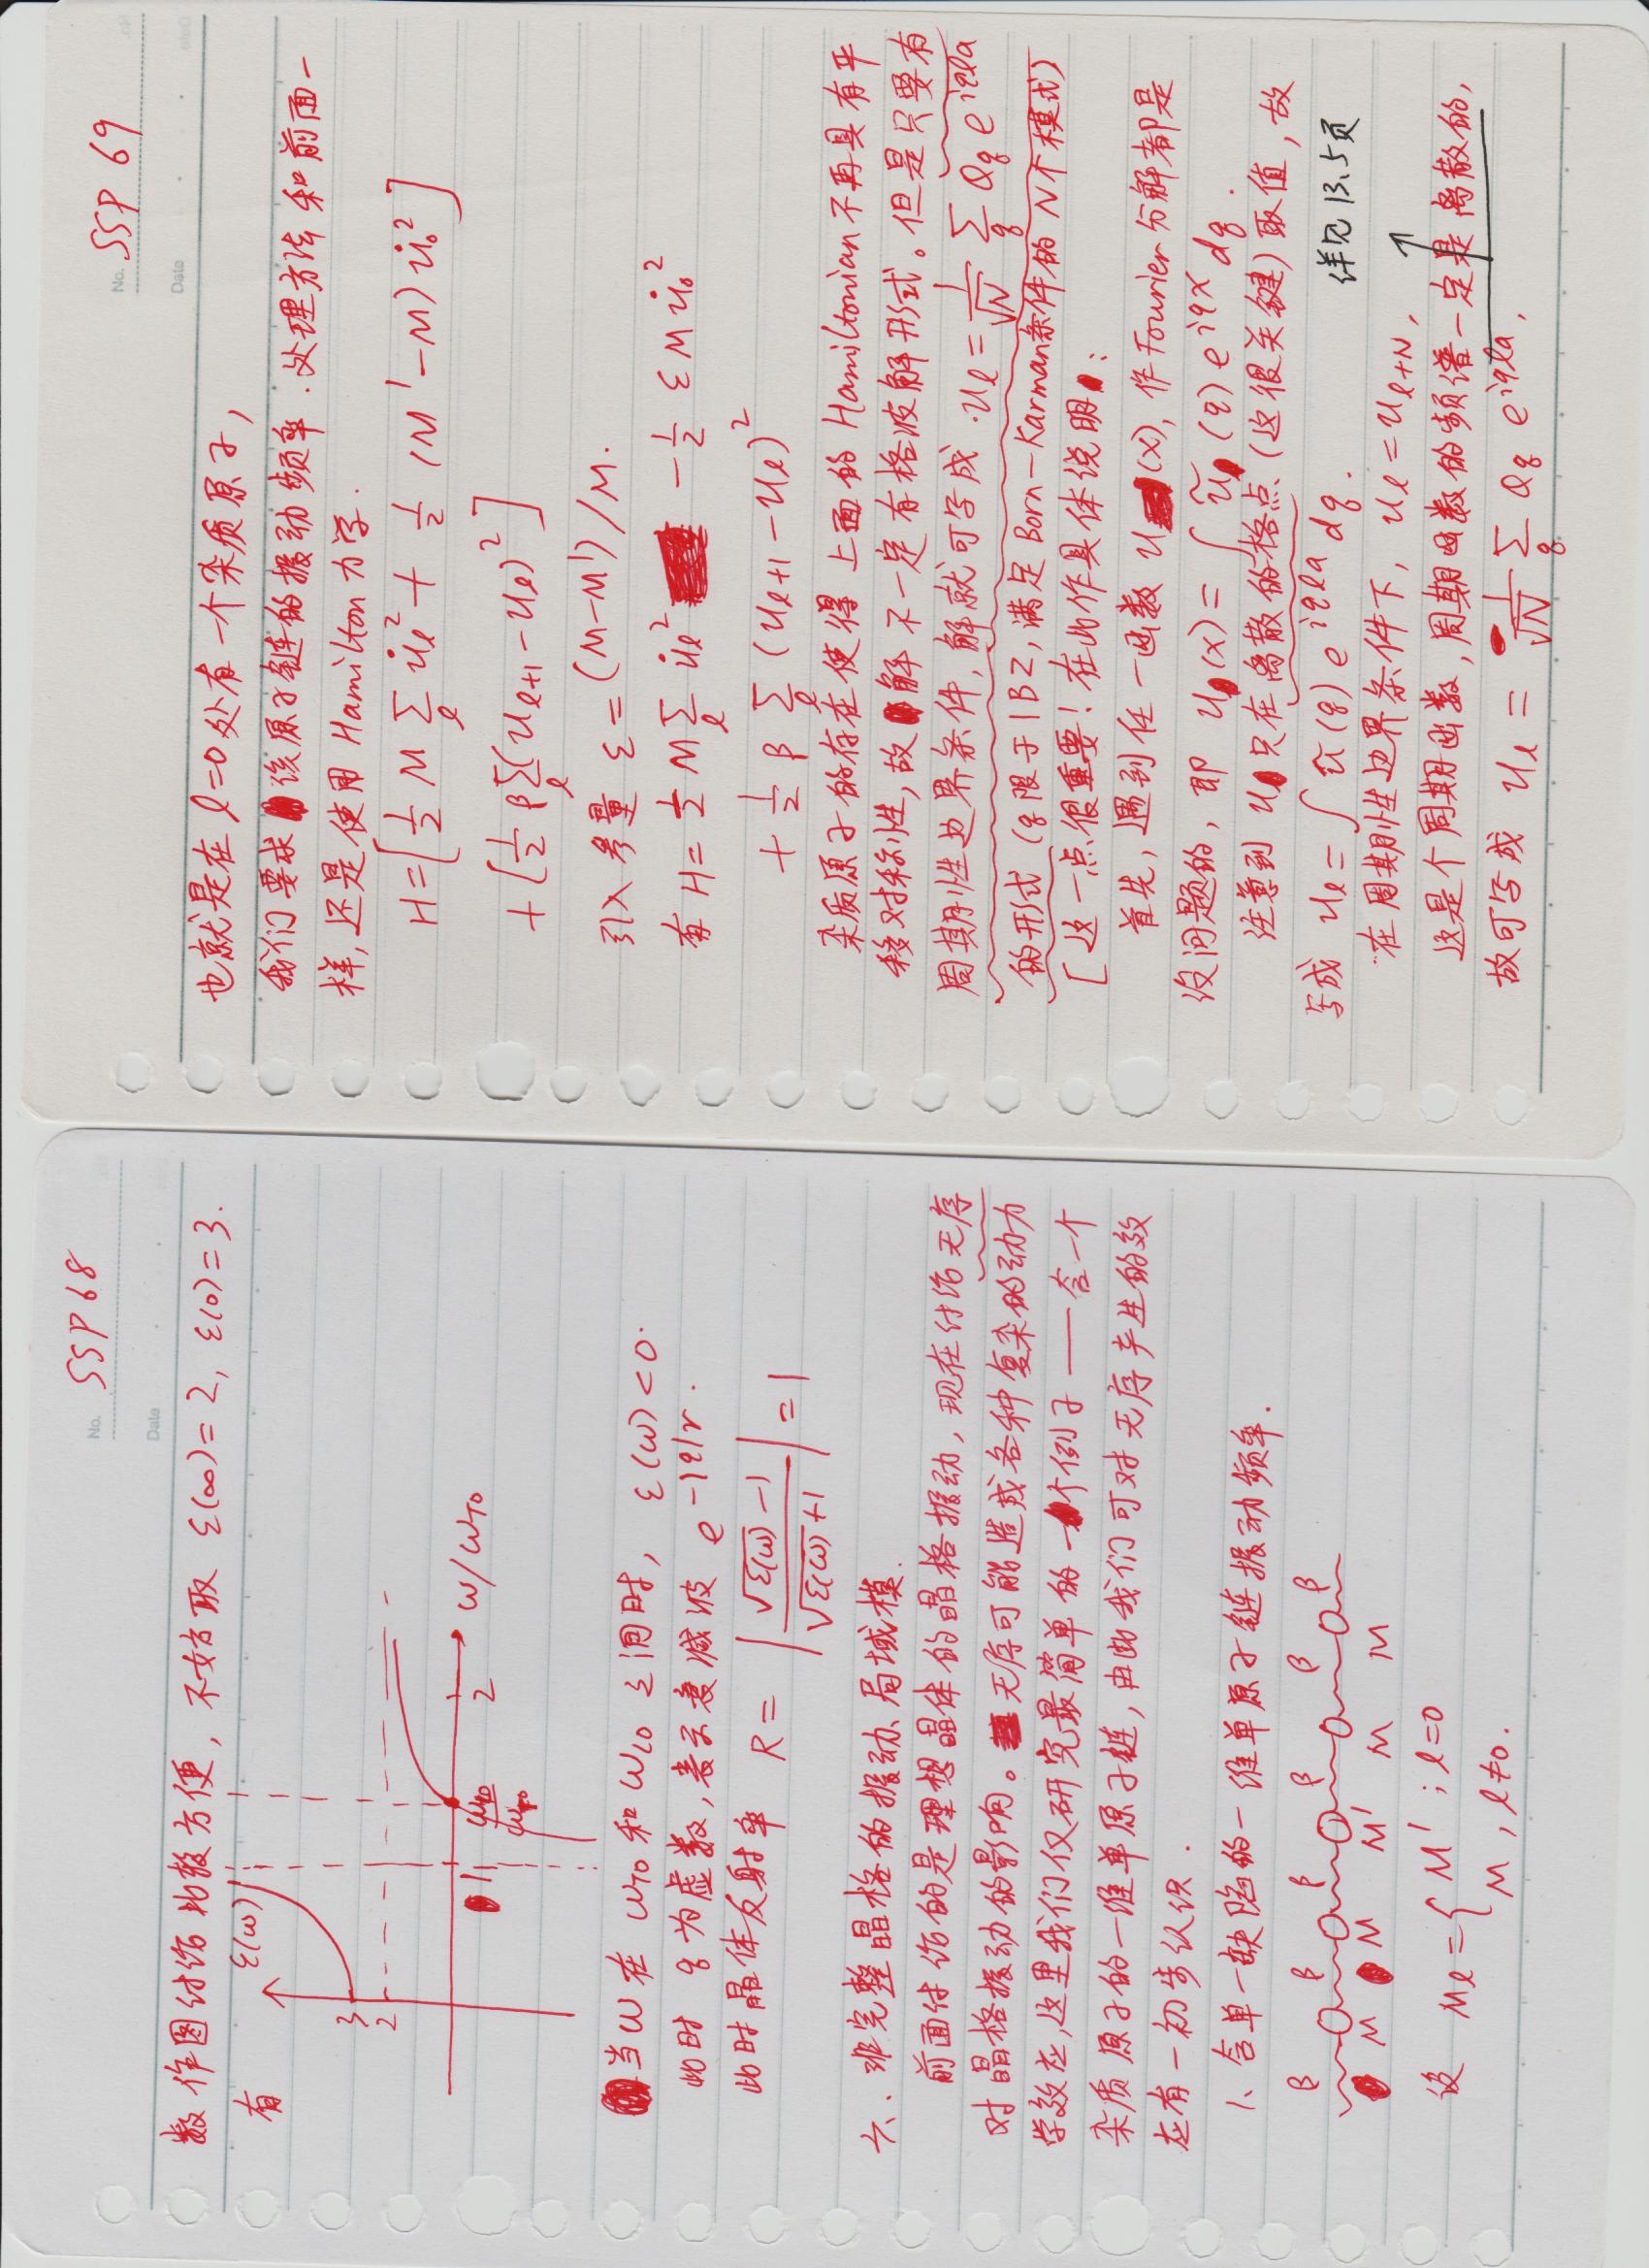 No. SSP 68
Date
数作图讨论比较方便, 不妨取 ε(∞)=2, ε(0)=3.
有
ε(ω)
3
2
1
ω_LO/ω_TO
2
ω/ω_TO
当ω在 ω_TO 和 ω_LO 之间时, ε(ω)<0.
此时 q 为虚数, 表示衰减波 e^{-|q|r}.
此时晶体反射率 R = |(√ε(ω) - 1)/(√ε(ω) + 1)| = 1
六、非完整晶格的振动、局域模.
前面讨论的是理想晶体的晶格振动, 现在讨论无序
对晶格振动的影响。无序可能造成各种复杂的动力
学效应, 这里我们仅研究最简单的一个例子——含一个
杂质原子的一维单原子链, 由此我们可对无序产生的效
应有一初步认识.
1、含单一缺陷的一维单原子链振动频率.
β β β β β β
M M M' M M
设 M_l = { M' ; l=0
M , l≠0.
No. SSP 69
Date
也就是在 l=0 处有一个杂质原子,
我们要求该原子链的振动频率. 处理方法和前面一
样, 还是使用 Hamilton 力学.
H = [½ M Σ_l u̇_l² + ½ (M'-M) u̇_0²]
+ [½ β Σ_l (u_{l+1} - u_l)²]
引入参量 ε = (M-M')/M.
有 H = ½ M Σ_l u̇_l² - ½ ε M u̇_0²
+ ½ β Σ_l (u_{l+1} - u_l)²
杂质原子的存在使得上面的 Hamiltonian 不再具有平
移对称性, 故解不一定有格波解形式。但是只要有
周期性边界条件, 解就可写成 u_l = 1/√N Σ_q Q_q e^{iqla}
的形式 (q限于1BZ, 满足 Born-Karman条件的 N个模式)
[这一点很重要! 在此作具体说明:
首先, 遇到任一函数 u(x), 作Fourier分解都是
没问题的, 即 u(x) = ∫ ũ(q) e^{iqx} dq.
注意到 u 只在离散的格点 (这很关键) 取值, 故
写成 u_l = ∫ ũ(q) e^{iqla} dq.
详见13.5页
在周期性边界条件下, u_l = u_{l+N},
这是个周期函数, 周期函数的频谱一定是离散的,
故可写成 u_l = 1/√N Σ_q Q_q e^{iqla},